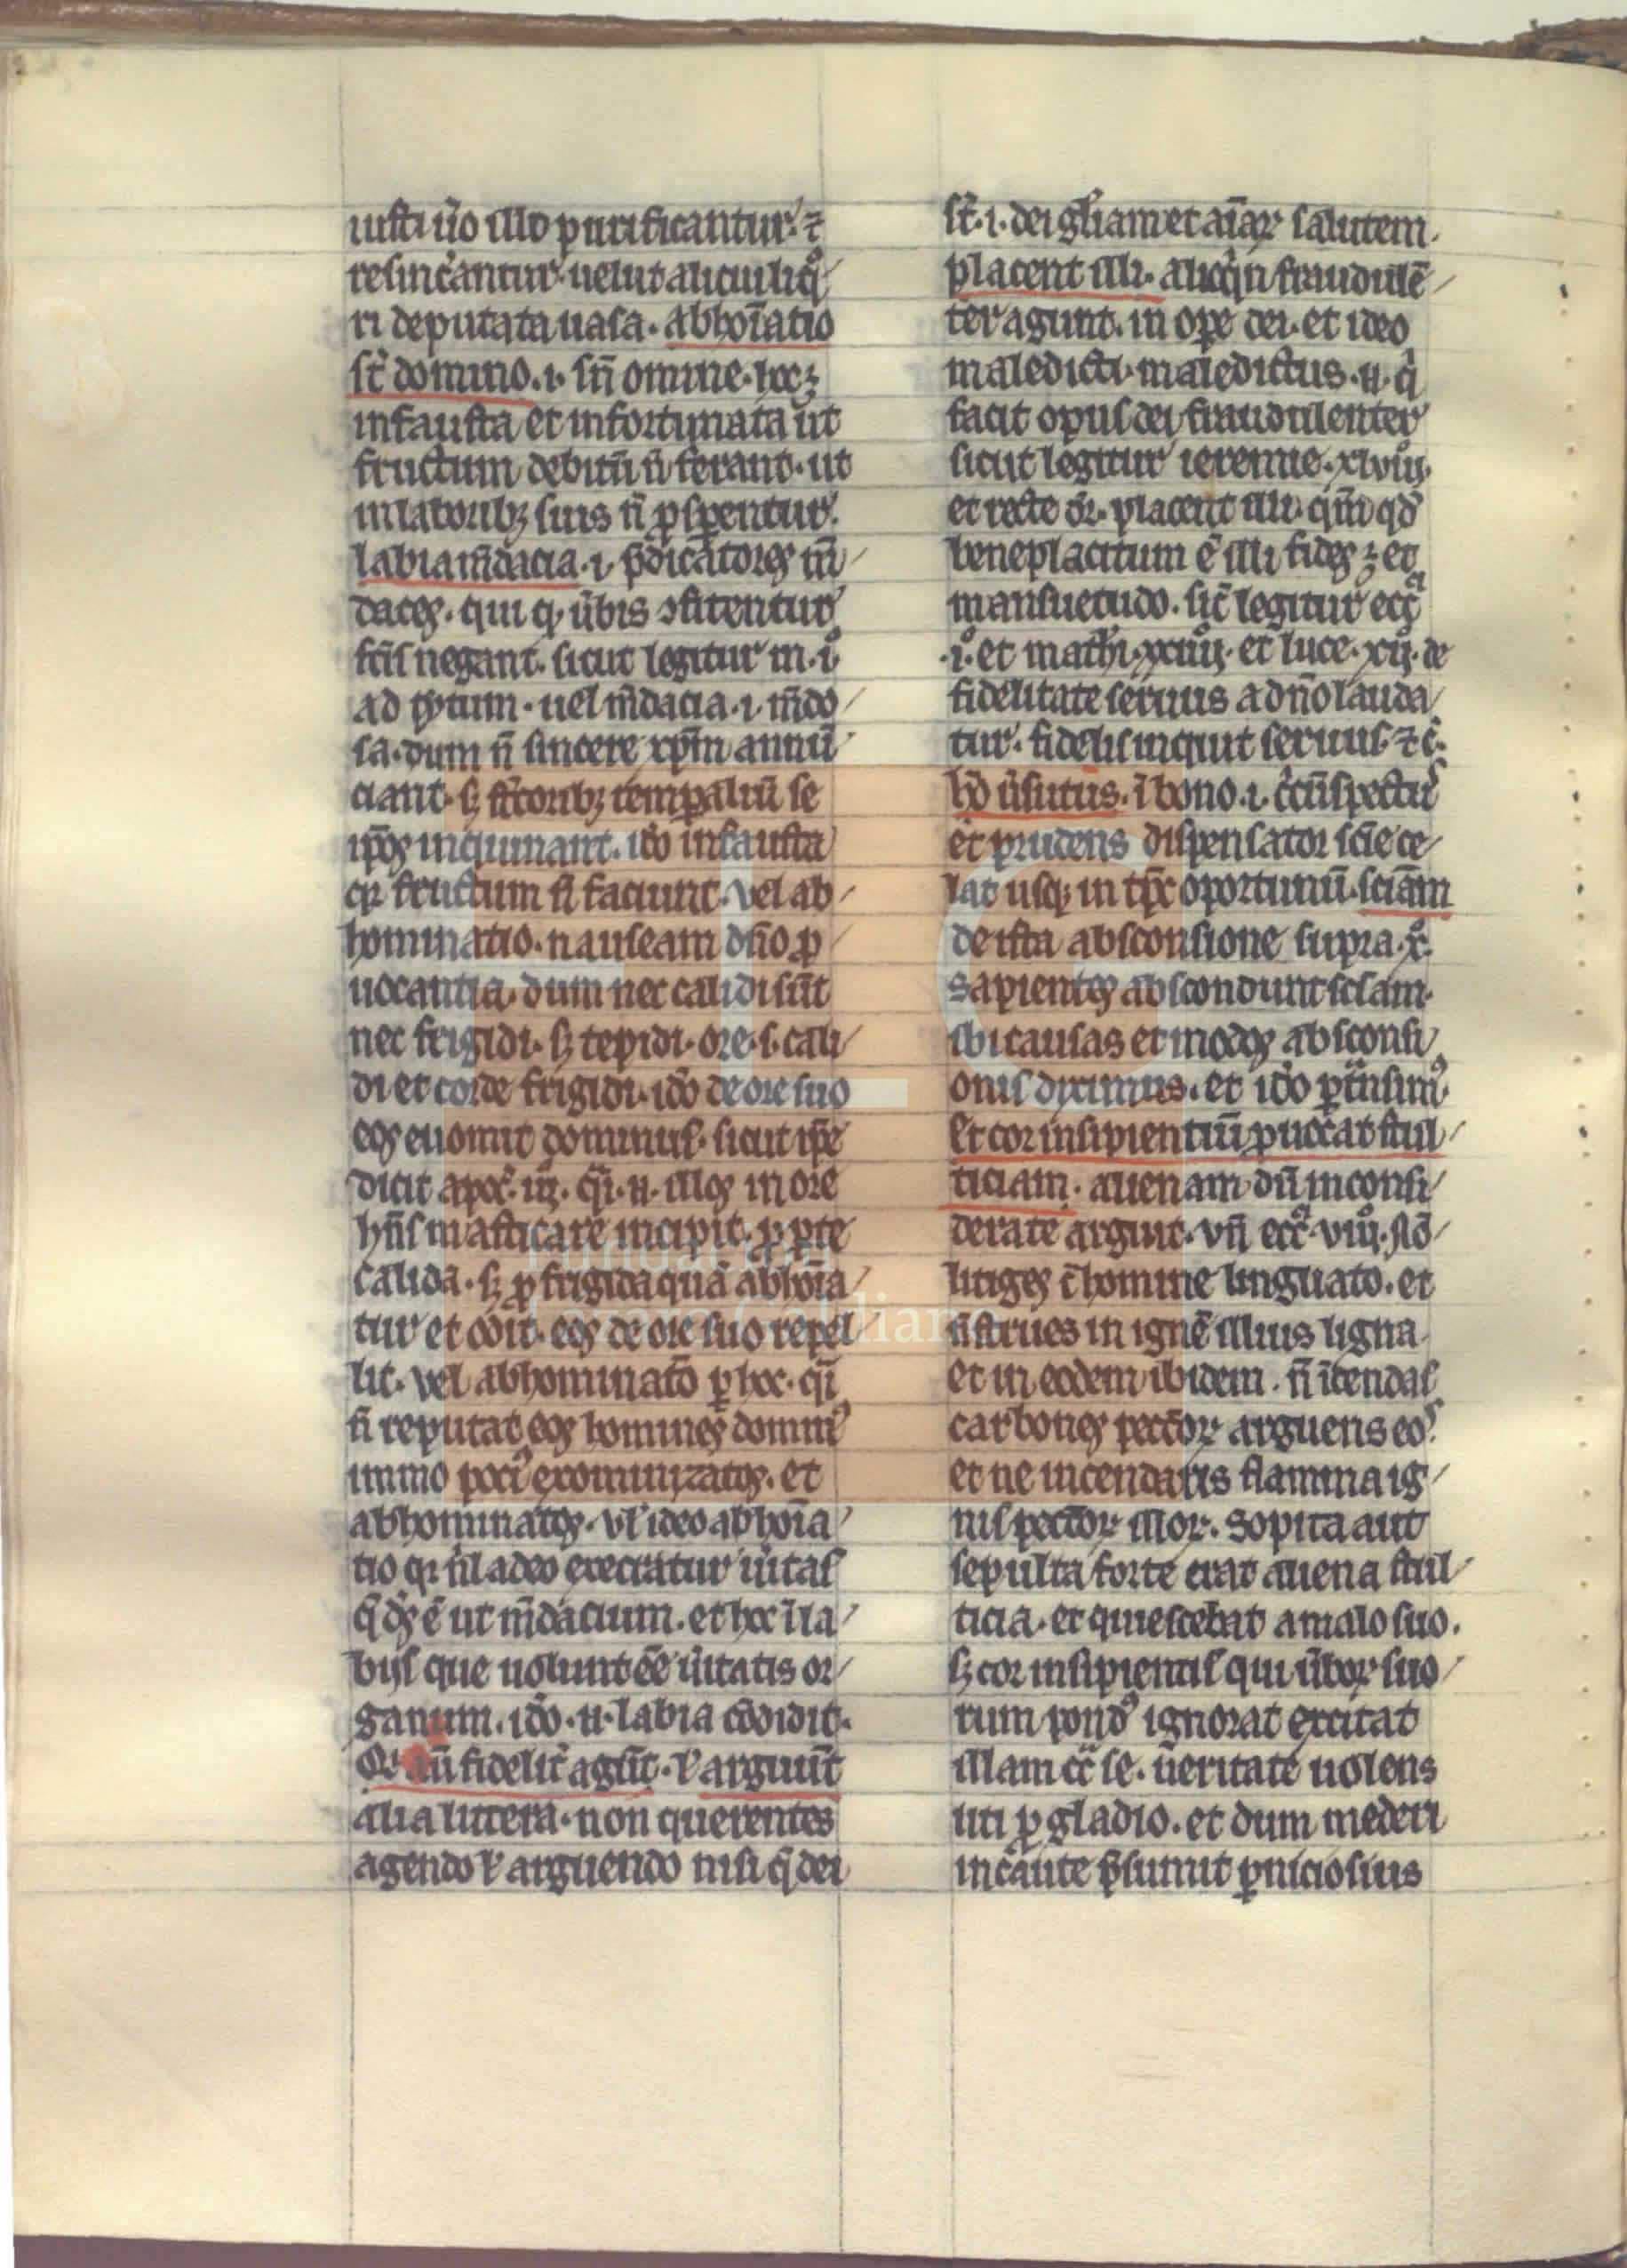 iusti ũo illo purificantur. ⁊
resincẽantur uelut alicui liq̃
ri deputata uasa. abhoĩatio
st̃ domino .i. sñ omine. hoc ⁊
infausta et infortunata ut
fructum debitũ ñ ferant. ut
in latoribꝫ suis ñ ꝓsꝑentur.
labia m̃dacia .i. p̃dicatores m̃
daces. qui q̃ ũbis ꝯfitentur
fcĩs negant. sicut legitur in .i.
ad tytum. uel m̃dacia .i. m̃do
sa. dum ñ sincere xp̃m annũ
ciant. sꝫ stẽoribꝫ temꝑaliũ se
ip̃os inquinant. iõ infausta
qꝛ fructum ñ faciunt. vel ab
hominatio. nauseam dño ꝓ
uocantia. dum nec calidi sũt
nec frigidi. sꝫ tepidi. ore .s. cali
di et corde frigidi. iõ de ore suo
eos euomit dominus. sicut ip̃e
dicit apoc̃. iij. qĩ .n. illos in ore
hñs masticare incipit. ꝓ ꝑte
calida. sꝫ ꝓ frigida qua abhoĩa
tur et odit. eos de ore suo repel
lit. vel abhominatõ ꝑ hoc. qĩ
ñ reputat eos homines domin̾
immo poci̾ exominizatos. et
abhominatos. vl̃ ideo abhoĩa
tio qꝛ ñl adeo execratur ũitas
q̃ dꝰ ẽ ut m̃dacium. et hoc ĩ la
bijs que uolunt eẽ ũitatis or
ganum. iõ .n. labia cõdidit.
Qꝛ aũ fidelit̃ agũt. ł arguũt
alia littera. non querentes
agendo ł arguendo nisi q̃ dei
st̃ .i. dei gl̃iam et aĩaꝝ salutem.
placent illi. alioq̃n fraudulẽ
ter agunt. in oꝑe dei. et ideo
maledicti. maledictus .n. q̃
facit opus dei fraudulenter
sicut legitur ieremie. xlviij.
et recte dr̃. placent illi. qm̃ qđ
beneplacitum ẽ illi fides ⁊ et
mansuetudo. sic̃ legitur ecc̃ᵃ
.i. et math̃. xxiiij. et luce. xij. de
fidelitate seruus a dño lauda
tur. fidelis inquit seruus. ⁊ c̃.
hõ ũsutus. ĩ bono .i. c̃cũspectꝰ
et prudens dispensator scĩe ce
lat usqꝫ in tp̃c oportunũ. sciãm
de ista absconsione supra .x.
sapientes abscondunt sciam.
ibi causas et modos absconsi
onis diximus. et iõ ꝑt̃nsim̾.
Et cor insipientiũ ꝓuocat stul
ticiam. alienam dũ inconsi
derate arguit. vñ ecc̃ᵃ. viij. Nõ
litiges c̃ homine linguato. et
ñ strues in ignẽ illius ligna.
et in eodem ibidem. ñ ĩcendas
carbones pecc̃oꝝ arguens eos.
et ne incendaris flamma ig
nis pecc̃oꝝ illoꝝ. Sopita aut
sepulta forte erat aliena stul
ticia. et quiescebat a malo suo.
sꝫ cor insipientis qui ũboꝝ suo
rum pond̾ ignorat excitat
illam cc̃ᵃ se. ueritate uolens
uti ꝓ gladio. et dum mederi
incaute p̃sumit ꝑniciosius